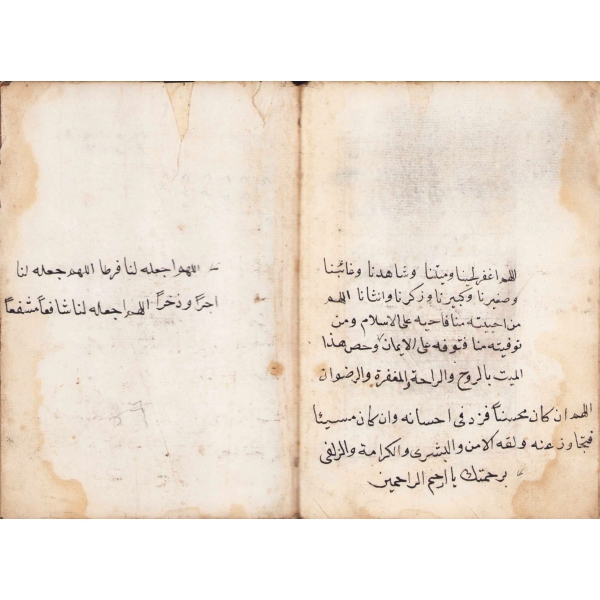 اللهم اغفر لحينا وميتنا وشاهدنا وغائبنا
وصغيرنا وكبيرنا وذكرنا وانثانا اللهم
من احييته منا فاحيه على الاسلام ومن
توفيته منا فتوفه على الايمان وخص هذا
الميت بالروح والراحة والمغفرة والرضوان
اللهم ان كان محسناً فزد فى احسانه وان كان مسيئا
فتجاوز عنه ولقه الامن والبشرى والكرامة والزلفى
برحمتك يا ارحم الراحمين
اللهم اجعله لنا فرطا اللهم جعله لنا
اجراً وذخراً اللهم اجعله لنا شافعاً مشفعاً